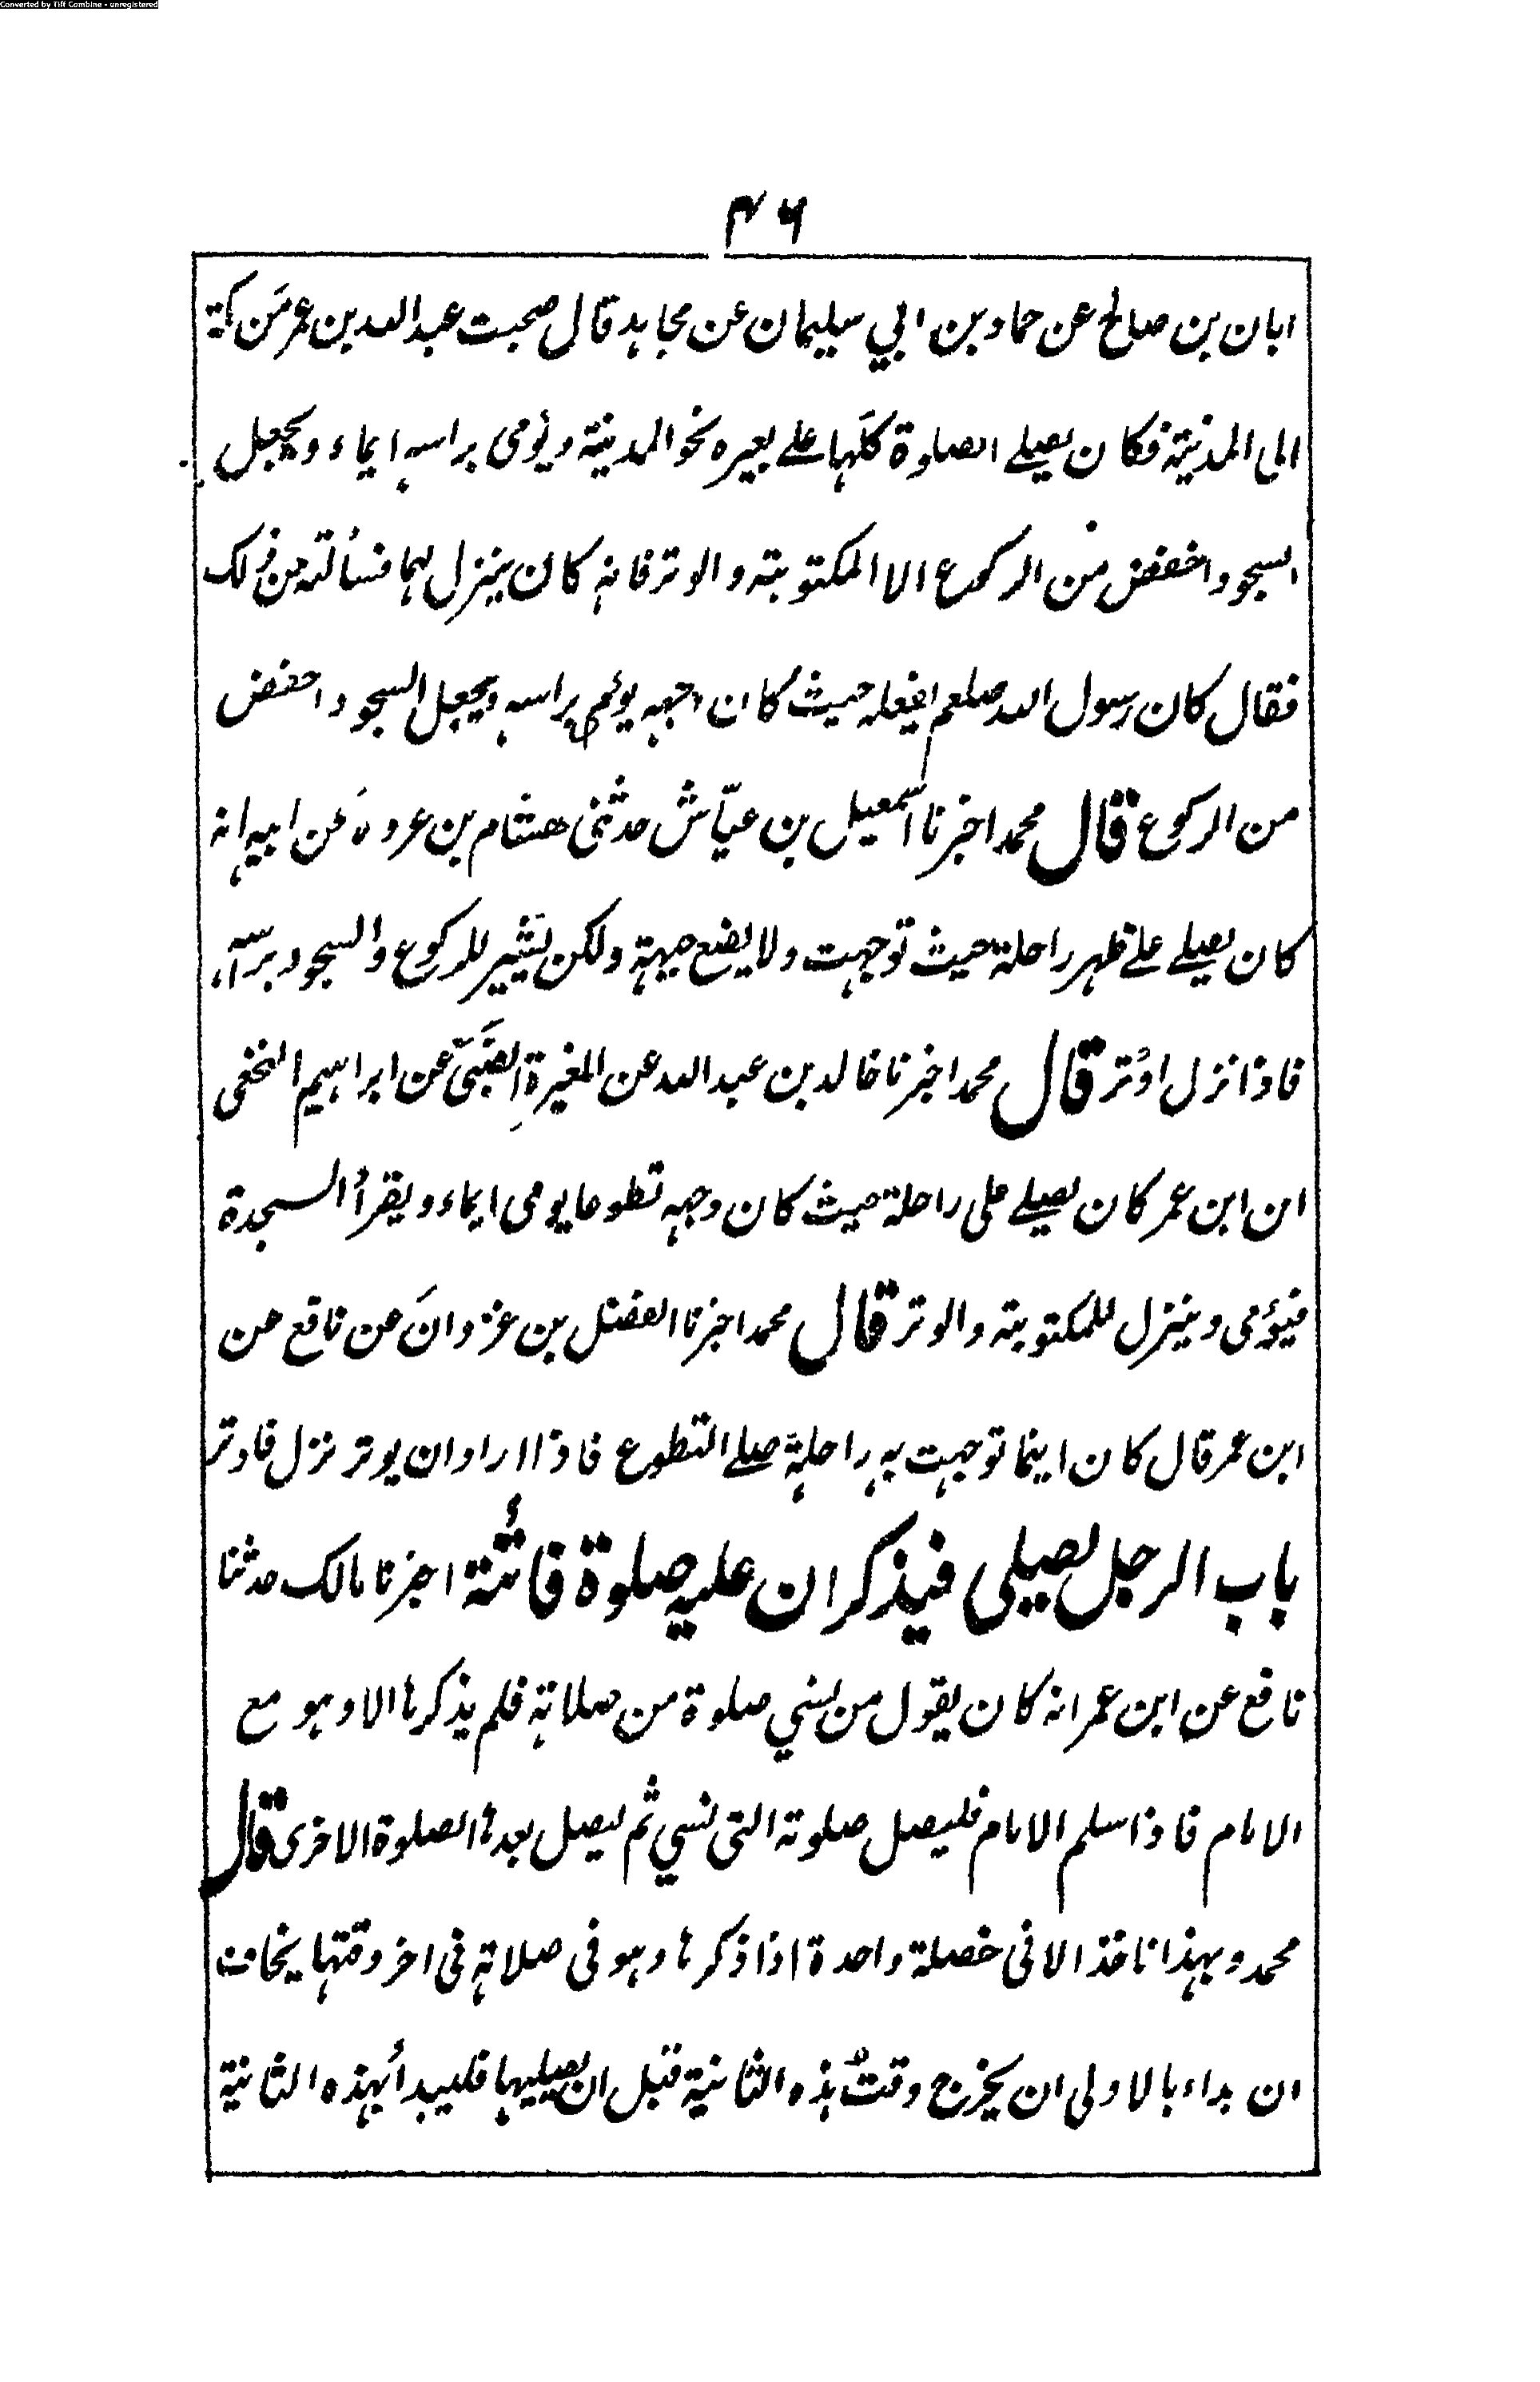 Converted by Tiff Combine - unregistered
۴۶
ابان بن صالح عن حماد بن ابي سليمان عن مجاهد قال صحبت عبد الله بن عمر من مكة
الى المدينة فكان يصلے الصلوة كلها علے بعيره نحو المدينة ويؤمى براسه ايماء ويجعل
السجود اخفض من الركوع الا المكتوبة والوتر فانه كان ينزل لهما فسألته من ذلك
فقال كان رسول الله صلعم يفعله حيث كان وجهه يومى براسه ويجعل السجود اخفض
من الركوع قال محمد اخبرنا اسمعيل بن عيّاش حدثنى هشام بن عروة عن ابيه انه
كان يصلے علے ظهر راحلته حيث توجهت ولا يضع جبهته ولكن يشير للركوع والسجود براسه
فاذا نزل اوتر قال محمد اخبرنا خالد بن عبد الله عن المغيرة الضبىّ عن ابراهيم النخعى
ان ابن عمر كان يصلے على راحلته حيث كان وجهه تطوعا يومى ايماء ويقرأ السجدة
فيؤمى وينزل للمكتوبة والوتر قال محمد اخبرنا الفضل بن غزوان عن نافع عن
ابن عمر قال كان اينما توجهت به راحلته صلے التطوع فاذا اراد ان يوتر نزل فاوتر
باب الرجل يصلى فيذكر ان عليه صلوة فائتة اخبرنا مالك حدثنا
نافع عن ابن عمر انه كان يقول من نسي صلوة من صلاته فلم يذكرها الا وهو مع
الامام فاذا سلم الامام فليصل صلوته التى نسي ثم ليصل بعدها الصلوة الاخرى قال
محمد وبهذا ناخذ الا فى خصلة واحدة اذا ذكرها وهو فى صلاته فى اخر وقتها يخاف
ان بداء بالاولى ان يخرج وقت هذه الثانية قبل ان يصليها فليبدأ بهذه الثانية